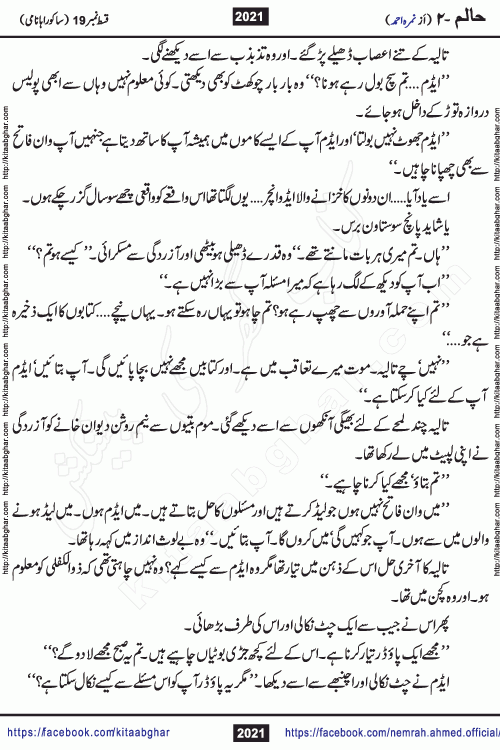 حالم -۲ (از نمرہ احمد)
2021
قسط نمبر 19 (ساکورا ہانامی)
تالیہ کے تنے اعصاب ڈھیلے پڑ گئے۔ اور وہ تذبذب سے اسے دیکھنے لگی۔
’’ایڈم.... تم سچ بول رہے ہو نا؟‘‘ وہ بار بار چوکھٹ کو بھی دیکھتی۔ کوئی معلوم نہیں وہاں سے ابھی پولیس
دروازہ توڑ کے داخل ہو جائے۔
’’ایڈم جھوٹ نہیں بولتا‘ اور ایڈم آپ کے ایسے کاموں میں ہمیشہ آپ کا ساتھ دیتا ہے جنہیں آپ وان فاتح
سے بھی چھپانا چاہیں۔‘‘
اسے یاد آیا.....ان دونوں کا خزانے والا ایڈوانچر.... یوں لگتا تھا اس واقعے کو واقعی چھے سو سال گزر چکے ہوں۔
یا شاید پانچ سو ستاون برس۔
’’ہاں۔ تم میری ہر بات مانتے تھے۔‘‘ وہ قدرے ڈھیلی ہو بیٹھی اور آزردگی سے مسکرائی۔ ’’کیسے ہو تم؟‘‘
’’اب آپ کو دیکھ کے لگ رہا ہے کہ میرا مسئلہ آپ سے بڑا نہیں ہے۔‘‘
’’تم اپنے حملہ آوروں سے چھپ رہے ہو؟ تم چاہو تو یہاں رہ سکتے ہو۔ یہاں نیچے.... کتابوں کا ایک ذخیرہ
ہے جو....‘‘
’’نہیں‘ چے تالیہ۔ موت میرے تعاقب میں ہے۔ اور کتابیں مجھے نہیں بچا پائیں گی۔ آپ بتائیں‘ ایڈم
آپ کے لئے کیا کر سکتا ہے۔‘‘
تالیہ چند لمحے کے لئے بھیگی آنکھوں سے اسے دیکھے گئی۔ موم بتیوں سے نیم روشن دیوان خانے کو آزردگی
نے اپنی لپیٹ میں لے رکھا تھا۔
’’تم بتاؤ‘ مجھے کیا کرنا چاہیے۔‘‘
’’میں وان فاتح نہیں ہوں جو لیڈ کرتے ہیں اور مسئلوں کا حل بتاتے ہیں۔ میں ایڈم ہوں۔ میں لیڈ ہونے
والوں میں سے ہوں۔ آپ جو کہیں گی‘ میں کروں گا۔ آپ بتائیں۔‘‘ وہ بے لوث انداز میں کہہ رہا تھا۔
تالیہ کا آخری حل اس کے ذہن میں تیار تھا مگر وہ ایڈم سے کیسے کہے؟ وہ نہیں چاہتی تھی کہ ذوالکفلی کو معلوم
ہو۔ اور وہ کچن میں تھا۔
پھر اس نے جیب سے ایک چٹ نکالی اور اس کی طرف بڑھائی۔
’’مجھے ایک پاؤڈر تیار کرنا ہے۔ اس کے لئے کچھ جڑی بوٹیاں چاہیے ہیں۔ تم یہ صبح مجھے لا دو گے؟‘‘
ایڈم نے چٹ نکالی اور اچنبھے سے اسے دیکھا۔ ’’مگر یہ پاؤڈر آپ کو اس مسئلے سے کیسے نکال سکتا ہے؟‘‘
https://facebook.com/kitaabghar
2021
https://facebook.com/nemrah.ahmed.official/
http://kitaabghar.com http://kitaabghar.com http://kitaabghar.com http://kitaabghar.com http://kitaabghar.com
http://kitaabghar.com http://kitaabghar.com http://kitaabghar.com http://kitaabghar.com http://kitaabghar.com